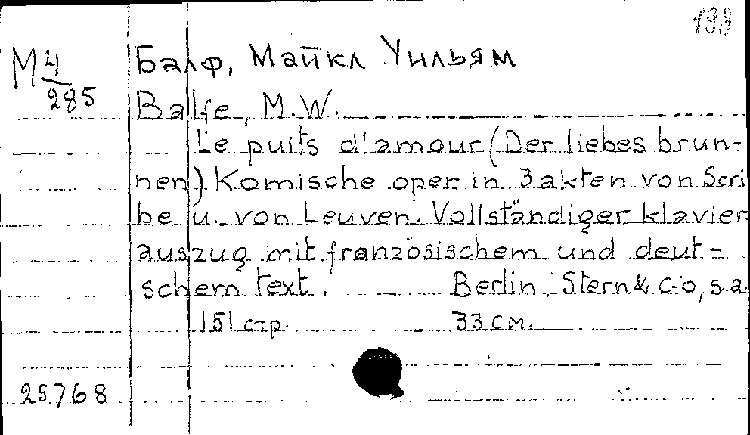 199
М 4/285
Балф, Майкл Уильям
Balfe, M.W.
Le puits d'amour (Der liebes brun-
nen). Komische oper in 3 akten von Scri
be u. von Leuven. Vollständiger klavier
auszug mit französischem und deut-
schem text. Berlin, Stern & Co, s.a
151 стр. 33 см.
25768